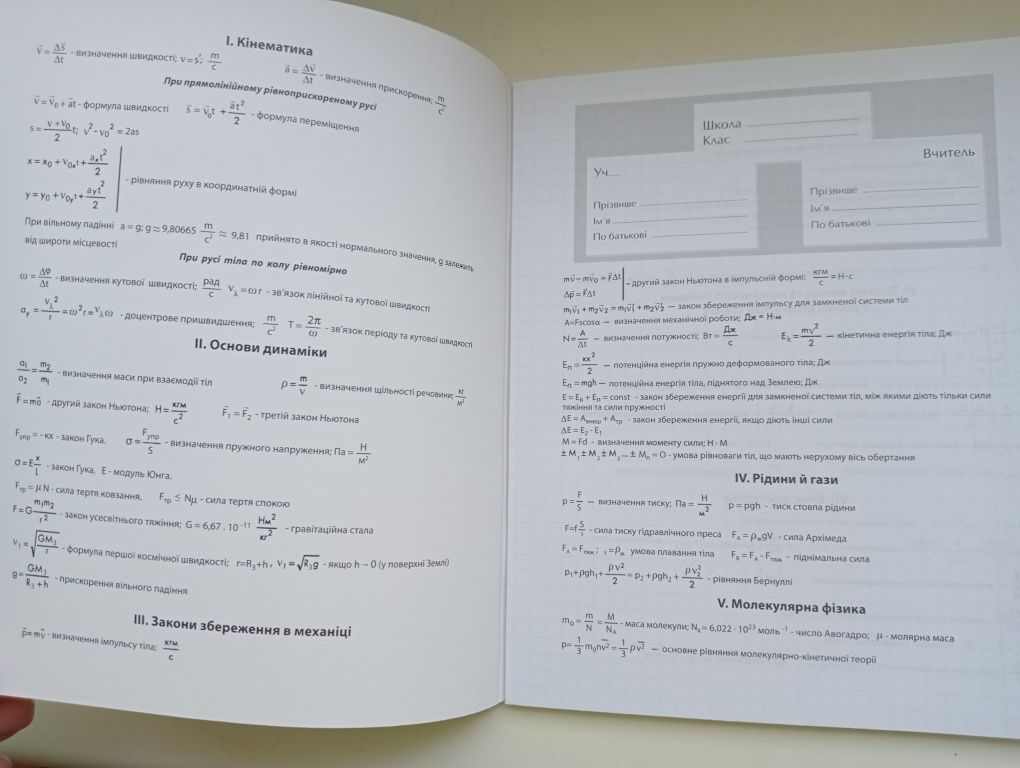 I. Кінематика
v⃗ = Δs⃗/Δt - визначення швидкості; v=s'; м/с
a⃗ = Δv⃗/Δt - визначення прискорення; м/с²
При прямолінійному рівноприскореному русі
v⃗ = v⃗₀ + a⃗t - формула швидкості s⃗ = v⃗₀t + a⃗t²/2 - формула переміщення
s = (v+v₀)/2 t; v² - v₀² = 2as
x = x₀ + v₀ₓt + aₓt²/2
- рівняння руху в координатній формі
y = y₀ + v₀yt + ayt²/2
При вільному падінні a = g; g ≈ 9,80665 м/с² ≈ 9,81 прийнято в якості нормального значення, g залежить
від широти місцевості
При русі тіла по колу рівномірно
ω = Δφ/Δt - визначення кутової швидкості; рад/с v_λ = ωr - зв'язок лінійної та кутової швидкості
a_r = v_λ²/r = ω²r = v_λω - доцентрове пришвидшення; м/с² T = 2π/ω - зв'язок періоду та кутової швидкості
II. Основи динаміки
a₁/a₂ = m₂/m₁ - визначення маси при взаємодії тіл ρ = m/v - визначення щільності речовини; кг/м³
F⃗ = ma⃗ - другий закон Ньютона; Н = кгм/с² F⃗₁ = F⃗₂ - третій закон Ньютона
Fупр = - кх - закон Гука. σ = Fупр/S - визначення пружного напруження; Па = Н/м²
σ = E x/L - закон Гука, E - модуль Юнга.
Fтр = μN - сила тертя ковзання. Fтр ≤ Nμ - сила тертя спокою
F = G m₁m₂/r² - закон усесвітнього тяжіння; G = 6,67 · 10⁻¹¹ Нм²/кг² - гравітаційна стала
v₁ = √(GM₃/r) - формула першої космічної швидкості; r=R₃+h, v₁ = √(R₃g) - якщо h → 0 (у поверхні Землі)
g = GM₃/(R₃+h) - прискорення вільного падіння
III. Закони збереження в механіці
p⃗ = mv⃗ - визначення імпульсу тіла; кгм/с
Школа
Клас
Уч
Вчитель
Прізвище
Ім'я
По батькові
Прізвище
Ім'я
По батькові
mv⃗ - mv⃗₀ = F⃗Δt
- другий закон Ньютона в імпульсній формі; кгм/с = Н·с
Δp⃗ = F⃗Δt
m₁v⃗₁ + m₂v⃗₂ = m₁v⃗₁' + m₂v⃗₂' — закон збереження імпульсу для замкненої системи тіл
A=Fscosα — визначення механічної роботи; Дж = Н·м
N = A/Δt — визначення потужності; Вт = Дж/с Eк = mv²/2 — кінетична енергія тіла; Дж
Eп = кх²/2 — потенційна енергія пружно деформованого тіла; Дж
Eп = mgh — потенційна енергія тіла, піднятого над Землею; Дж
E = Eк + Eп = const - закон збереження енергії для замкненої системи тіл, між якими діють тільки сили
тяжіння та сили пружності
ΔE = Aвнеш + Aтр - закон збереження енергії, якщо діють інші сили
ΔE = E₂ - E₁
M = Fd - визначення моменту сили; Н · М
± M₁ ± M₂ ± M₃ ... ± Mₙ = O - умова рівноваги тіл, що мають нерухому вісь обертання
IV. Рідини й гази
p = F/S — визначення тиску; Па = Н/м² p = pgh - тиск стовпа рідини
F=f S/s - сила тиску гідравлічного преса F_A = ρжgV - сила Архімеда
F_A = Fтяж; ₁=ρж умова плавання тіла Fв = F_A - Fтяж - піднімальна сила
p₁+ρgh₁+ρv²/2 = p₂+ρgh₂+ρv₂²/2 - рівняння Бернуллі
V. Молекулярна фізика
m₀ = m/N = M/N_A - маса молекули; N_A = 6,022 · 10²³ моль⁻¹ - число Авогадро; μ - молярна маса
p = 1/3 m₀nv̅² = 1/3 ρv̅² — основне рівняння молекулярно-кінетичної теорії